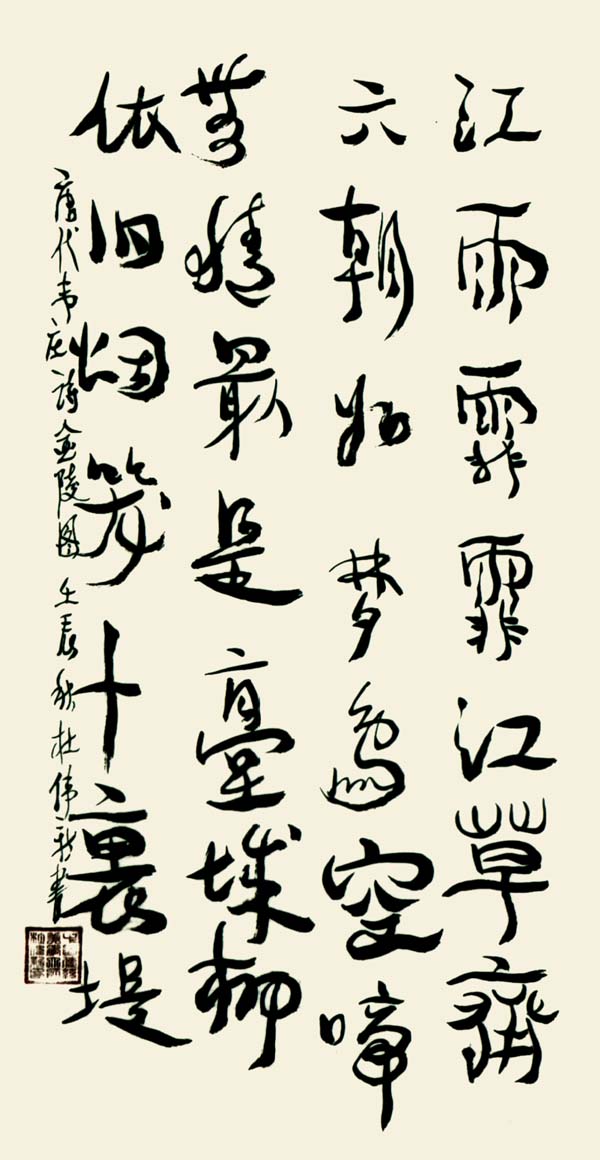 江雨霏霏江草齊
六朝如梦鳥空啼
無情最是臺城柳
依旧烟笼十裏堤
唐代韦庄诗金陵图 壬辰秋杜伟书